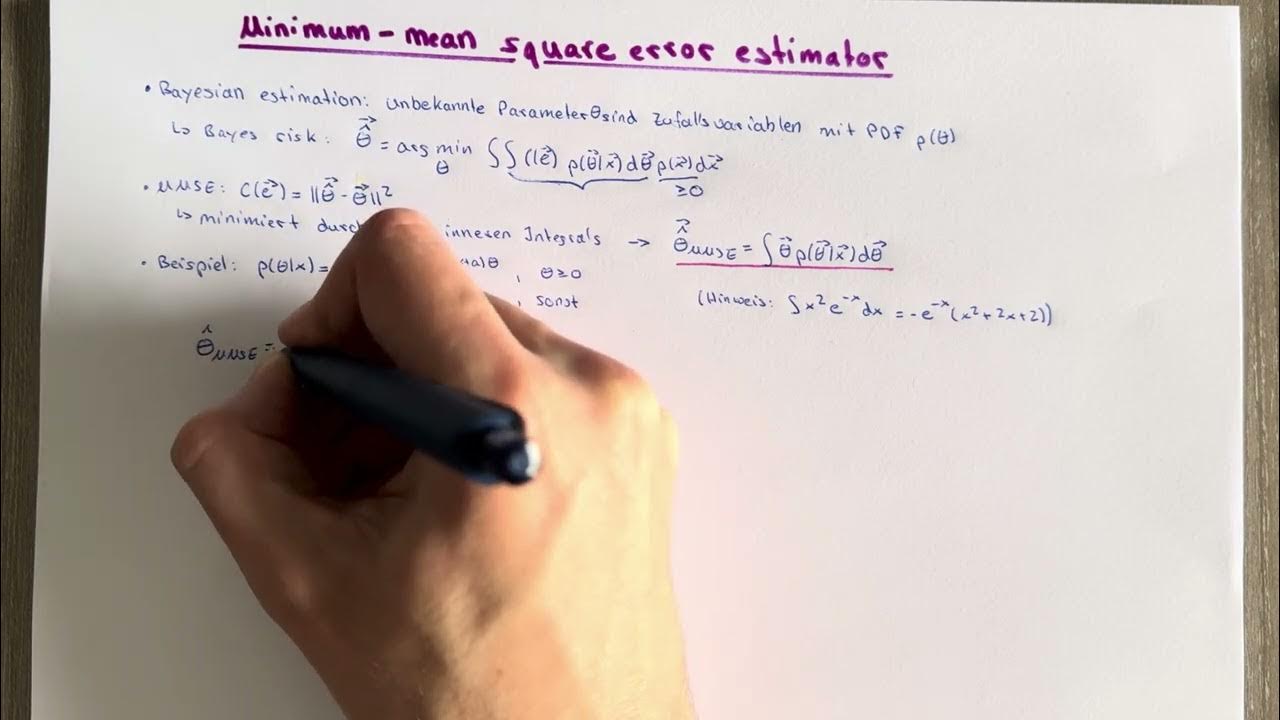 Minimum - mean square error estimator
• Bayesian estimation: unbekannte Parameter θ sind Zufallsvariablen mit PDF p(θ)
↳ Bayes risk: θ̂⃗ = arg min_θ ∫∫ C(e⃗) p(θ⃗|x⃗) dθ⃗ p(x⃗) dx⃗
≥0
• MMSE: C(e⃗) = ||θ̂⃗ - θ⃗||²
↳ minimiert durch inneren Integrals → θ̂⃗_MMSE = ∫ θ⃗ p(θ⃗|x⃗) dθ⃗
• Beispiel: p(θ|x) = )θ , θ≥0
, sonst
(Hinweis: ∫x²e^{-x}dx = -e^{-x}(x²+2x+2))
θ̂_MMSE =